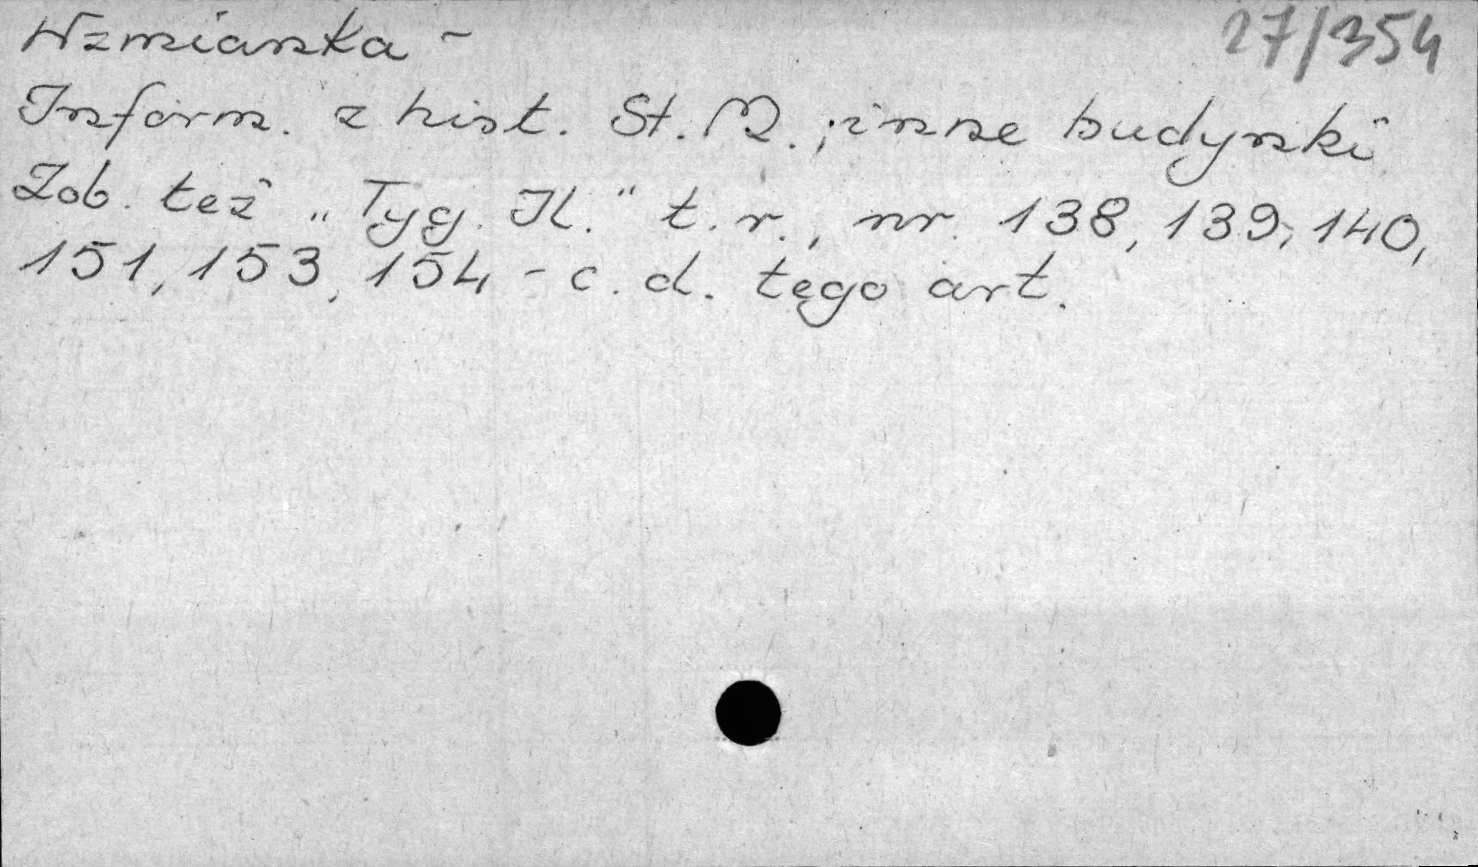 Wzmianka - 27/354
Inform. z hist. St. M.; inne budynki
Zob. też „Tyg. Il." t.r., nr. 138, 139, 140,
151, 153, 154 - c. d. tego art.